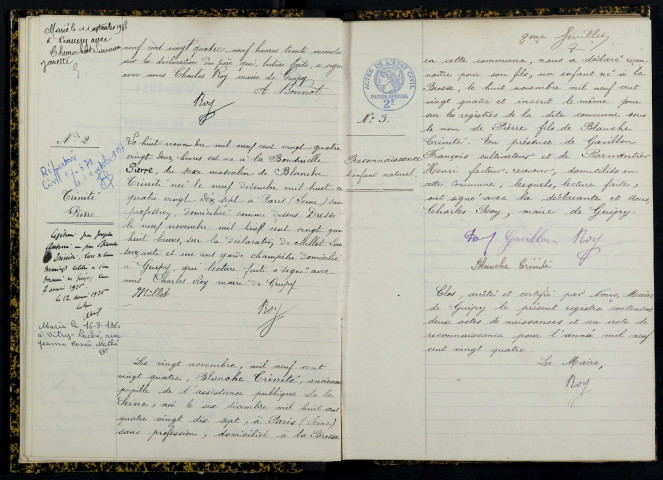 Marié le 11 septembre 19
à
avec
neuf cent vingt quatre, neuf heures trente minutes
sur la déclaration du père qui, lecture faite, a signé
avec nous Charles Roy maire de Guipy
A. Bonnot
Roy
N° 2
Trinité
Pierre
Le huit novembre mil neuf cent vingt quatre
vingt deux heures est né à la
Pierre, du sexe masculin de Blanche
Trinité née le neuf décembre mil huit cent
quatre vingt dix sept à Paris (Seine) sans
profession, domiciliée comme dessus. Dressé
le neuf novembre mil neuf cent vingt quatre
huit heures, sur la déclaration de Millot
soixante et un ans garde champêtre domicilié
à Guipy, qui lecture faite a signé avec
nous Charles Roy maire de Guipy
Millot
Roy
Légitimé par
le 12 avril 1925
Marié le 16-8-
à Vitry-Laché, avec
Jeanne Renée
Le vingt novembre, mil neuf cent
vingt quatre, Blanche Trinité, ancienne
pupille de l'assistance publique de la
Seine, née le six décembre mil huit cent
quatre vingt dix sept, à Paris (Seine)
sans profession, domiciliée à la Brosse
2me feuillet
ACTES DE L'ÉTAT CIVIL
PAPIER SPÉCIAL
2F
N° 3.
Reconnaissance
enfant naturel.
en cette commune, nous a déclaré recon-
naître pour son fils, un enfant né à la
Brosse, le huit novembre mil neuf cent
vingt quatre et inscrit le même jour
sur les registres de la dite commune sous
le nom de Pierre fils de Blanche
Trinité. En présence de Gavillon
François cultivateur et de Parmentier
Henri facteur receveur, domiciliés en
cette commune, lesquels, lecture faite,
ont signé avec la déclarante et Nous,
Charles Roy, maire de Guipy.
Gavillon Roy
Blanche Trinité
Clos, arrêté et certifié par Nous, Maire
de Guipy le présent registre contenant
deux actes de naissances et un acte de
reconnaissance pour l'année mil neuf
cent vingt quatre.
Le Maire,
Roy